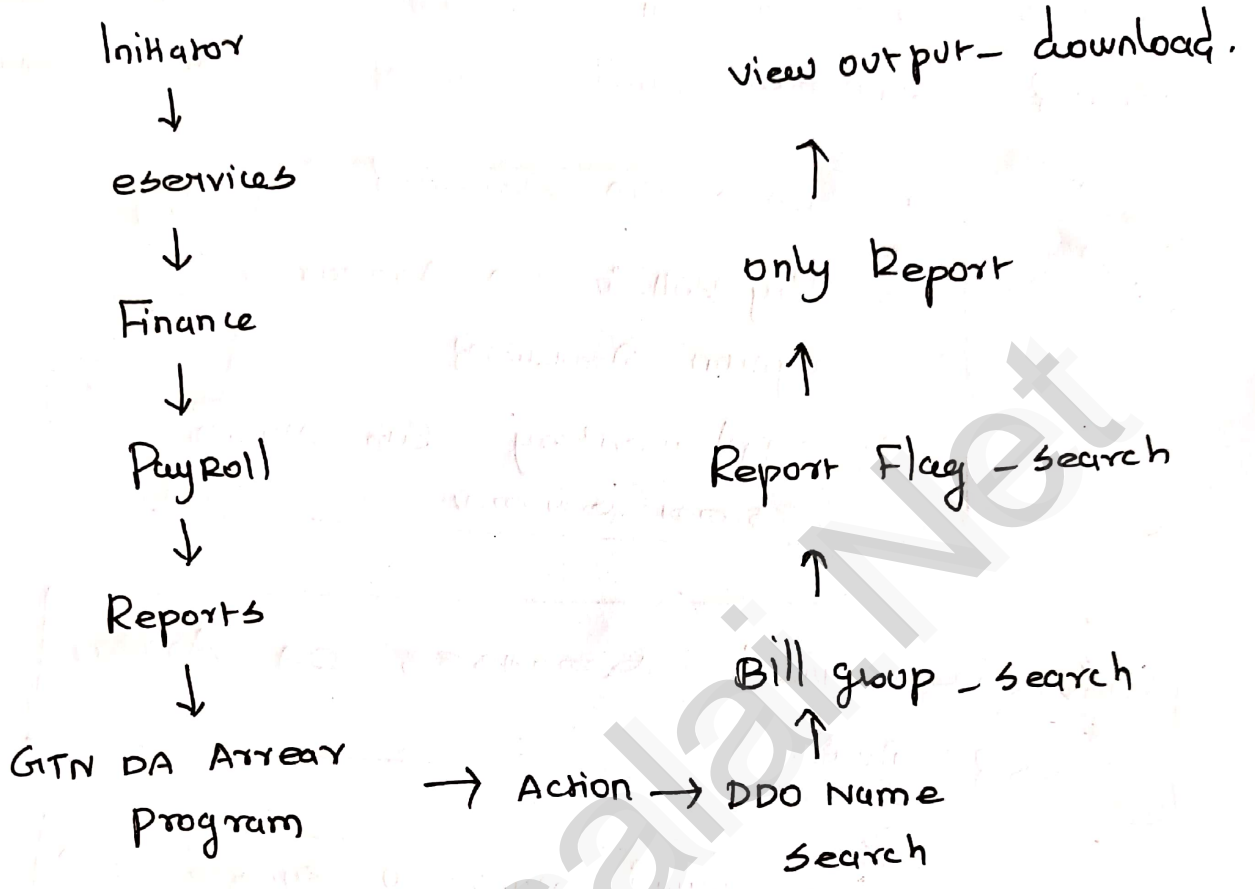 Initiator
↓
eservices
↓
Finance
↓
PayRoll
↓
Reports
↓
GTN DA Arrear
Program
→ Action → DDO Name
search
↑
Bill group - search
↑
Report Flag - search
↑
only Report
↑
view output - download.